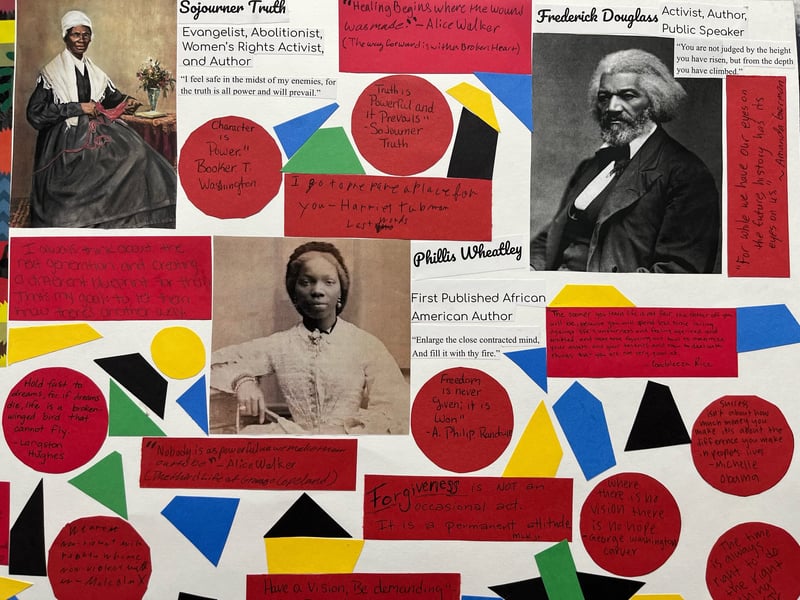 Sojourner Truth
Evangelist, Abolitionist,
Women's Rights Activist,
and Author
"I feel safe in the midst of my enemies, for
the truth is all power and will prevail."
"Healing Begins where the wound
was made." - Alice Walker
(The way forward is with a Broken Heart)
Frederick Douglass
Activist, Author,
Public Speaker
"You are not judged by the height
you have risen, but from the depth
you have climbed."
"For while we have our eyes on
the future history has its
eyes on us"
~ Amanda Gorman
Character
is
Power."
Booker T.
Washington
"Truth is
Powerful and
it Prevails"
- Sojourner
Truth
I go to prepare a place for
you - Harriet Tubman
Last words
I always think about the
next generation and creating
a different blueprint for them
That's my goal: to let them
know there's another way
Phillis Wheatley
First Published African
American Author
"Enlarge the close contracted mind,
And fill it with thy fire."
The sooner you learn life is not fair the better off you
will be, because you will spend less time
- Condoleezza Rice
Hold fast to
dreams, for if dreams
die, life is a broken-
winged bird that
cannot fly.
- Langston
Hughes
Freedom
is never
Given; it is
Won"
- A. Philip Randolph
Success
isn't about how
much money you
make it's about the
difference you make
in peoples lives
- Michelle
Obama
"Nobody is as powerful as we make them
out to be" - Alice Walker
(The third Life of Grange Copeland)
Forgiveness is not an
occasional act.
It is a permanent attitude
MLK Jr
Where
there is no
vision there
is no hope
- George Washington
Carver
We are
non-violent with
people who are
non-violent with
us - Malcolm X
Have a Vision, Be demanding"
The time
is always
right to do
the right
thing